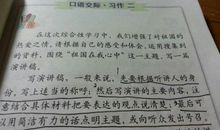 口语交际·习作二
在这次综合性学习中,我们增强了对祖国的
热爱之情。请根据自己的感受和体会,运用搜集到
的资料,围绕“祖国在我心中”这一主题,写一篇
演讲稿。
写演讲稿,一般来说,先要根据听讲人的身
份,写上适当的称呼;然后
意结合具体材料把要表达的观点说清楚;最后可
以用简洁有力的话点明主题,或向听众发出号召。